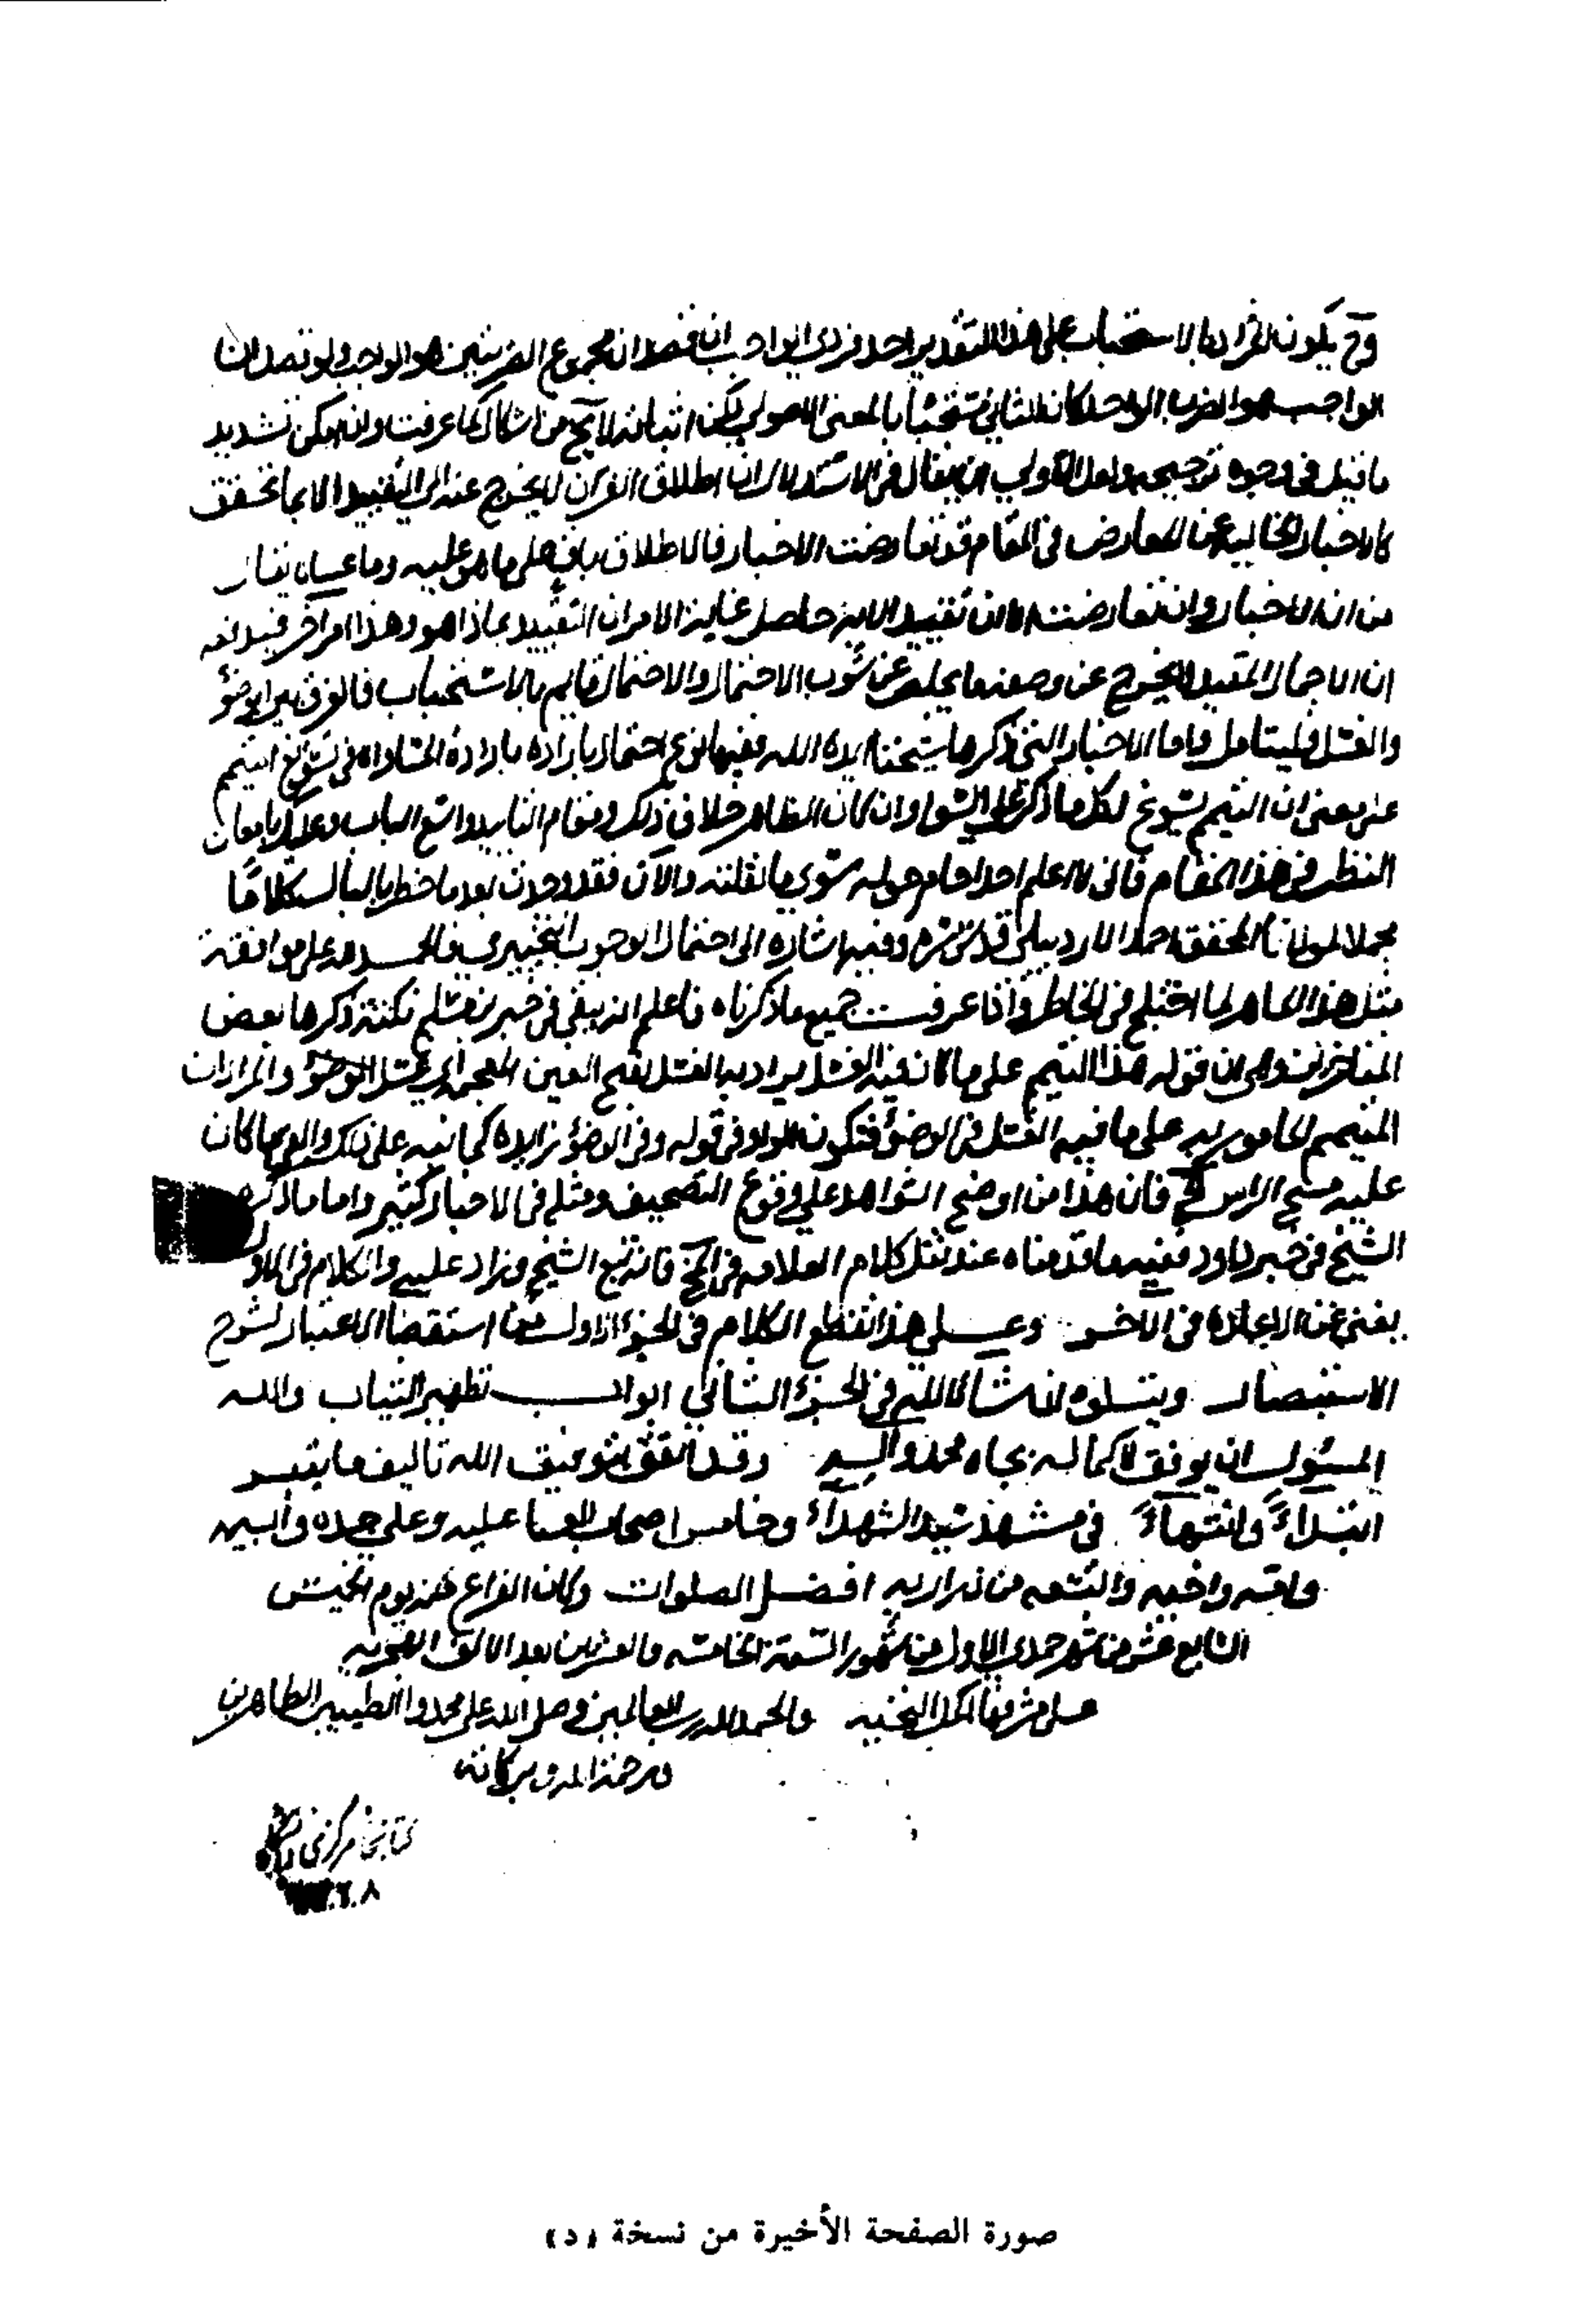 وح يكون المراد بالاستحباب على هذا التقدير احد فردي الواجب ان قصد ان مجموع الضربتين هو الواجب ولو قصد ان
الواجب هو الضرب الواحد كان الثاني مستحبا بالمعنى الاصولي لكن اثباته لا يخ من اشكال كما عرفت وان امكن تشديد
ما قيل في وجوه ترجيحه ولعل الاولى ان يقال في الاستدلال ان اطلاق القرآن لا يخرج عنه الى التقييد الا بما تحقق
كالاخبار الخالية عن المعارض في المقام قد تعارضت الاخبار فالاطلاق باق على ما هو عليه وما عساه يقال
من ان الاخبار وان تعارضت الا ان تقييد الآية حاصل غاية الامر ان التقييد بماذا هو وهذا امر آخر فيدفعه
ان الاجمال المقيد لا يخرج عن وصفه ما يخلص عن شوب الاحتمال والاحتمال قايم بالاستحباب فالفرق بين الوضوء
والغسل فليتامل واما الاخبار التي ذكرها شيخنا ايده الله ففيها نوع احتمال بارادة المساواة في تسويغ التيمم
على معنى ان التيمم يسوغ لكل ما ذكر على السواء وان كان الظاهر خلاف ذلك ومقام التاييد واسع الباب وعليك بامعان
النظر في هذا المقام فاني لا اعلم احدا حام حوله سوى ما نقلته والآن فقد وجدت بعد ما خطر بالبال كلاما
مجملا لمولانا المحقق احمد الاردبيلي قدس سره وفيه اشارة الى احتمال الوجوب التخييري فالحمد لله على موافقة
مثل هذا الماهر لما اختلج في الخاطر واذا عرفت جميع ما ذكرناه فاعلم انه بقي في خبر ابن مسلم نكتة ذكرها بعض
المتاخرين وهي ان قوله هذا التيمم على ما كان فيه الغسل يراد به الغسل بفتح الغين المعجمة اي غسل الوضوء والمراد ان
التيمم المامور به على ما فيه الغسل في الوضوء فتكون الواو في قوله وفي الوضوء زايدة كما نبه على ذلك والغى ما كان
عليه مسح الراس الخ فان هذا من اوضح الشواهد على وقوع التصحيف ومثله في الاخبار كثير واما ما ذكره
الشيخ في خبر داود ففيه ما قدمناه عند نقل كلام العلامة في المخ فانه تبع الشيخ وزاد عليه والكلام في الاول
يغني عن الاعادة في الآخر وعلى هذا نقطع الكلام في الجزء الاول من استقصاء الاعتبار لشرح
الاستبصار ويتلوه ان شاء الله في الجزء الثاني ابواب تطهير الثياب والله
المسئول ان يوفق لاكماله بجاه محمد وآله وقد اتفق بتوفيق الله تاليف ما تيسر
ابتداءً وانتهاءً في مشهد سيد الشهداء وخامس اصحاب العبا عليه وعلى جده وابيه
وامه واخيه والتسعة من ذراريه افضل الصلوات وكان الفراغ منه يوم الخميس
السابع عشر من شهر جمدى الاول من شهور السنة الخامسة والعشرين بعد الالف الهجرية
على مشرفها اكمل التحية والحمد لله رب العالمين وصلى الله على محمد وآله الطيبين الطاهرين
ورحمة الله وبركاته
كتابخانه مركزى
صورة الصفحة الأخيرة من نسخة «د»